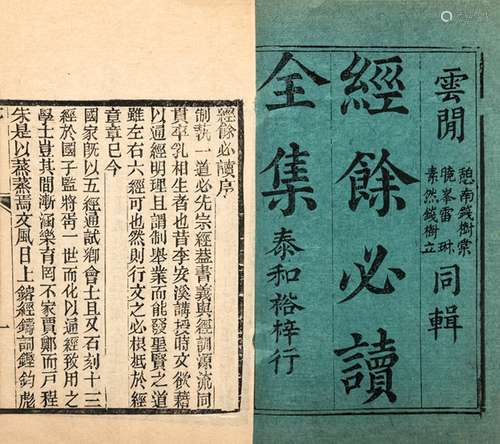 雲間
憩南錢樹棠
曉峯雷琳
素然錢樹立
同輯
經餘必讀
全集
泰和裕梓行
經餘必讀序
制執一道必先宗經葢書義與經訓源流同
貫奉乳相生者也昔李安溪講授時文欲藉
以通經明理且謂制舉業而能發聖賢之道
雖左右六經可也然則行文之必根柢於經
章章已今
國家既以五經通試鄉會士且又石刻十三
經於國子監將胥一世而化以通經致用之
學士豈其間漸涵樂育罔不家賈鄭而戸程
朱是以蒸蒸焉文風日上鎔經鑄詞鏗鈞彪